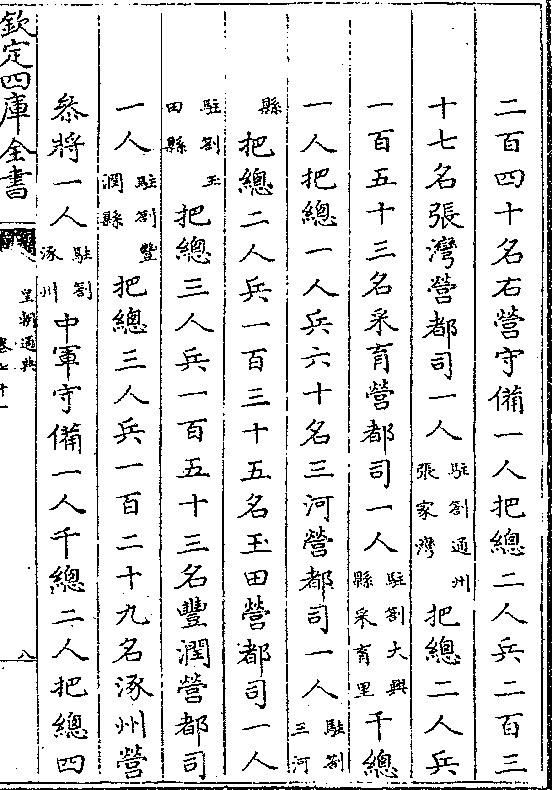 二百四十名右營守備一人把總二人兵二百三
十七名張灣營都司一人駐劄通州張家灣把總二人兵
一百五十三名采育營都司一人駐劄大興縣采育里千總
一人把總一人兵六十名三河營都司一人駐劄三河
縣把總二人兵一百三十五名玉田營都司一人
駐劄玉田縣把總三人兵一百五十三名豐潤營都司
一人駐劄豐潤縣把總三人兵一百二十九名涿州營
叅將一人駐劄涿州中軍守備一人千總二人把總四
欽定四庫全書
皇朝通典
卷七十一
八